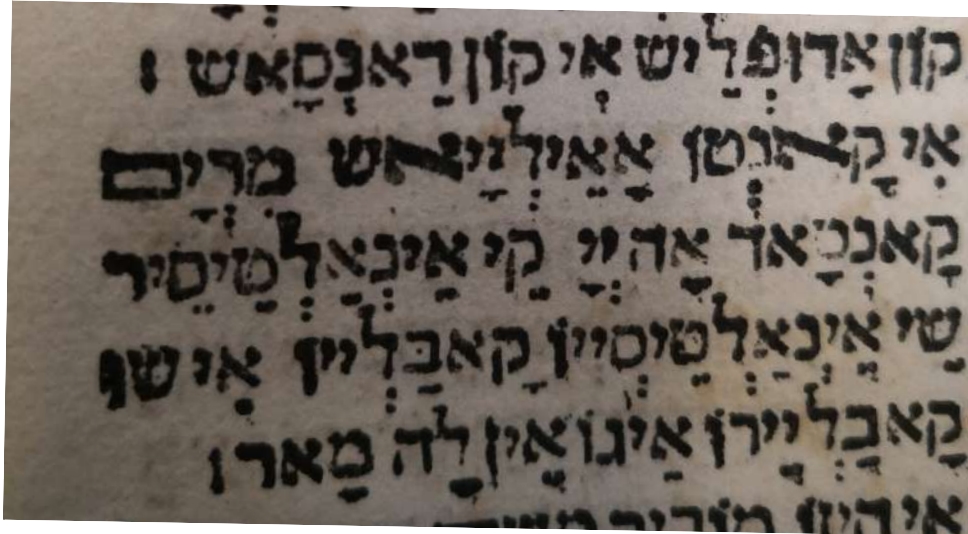 קוֹן אָדוּפְלֵיש אִי קוֹן דַאנְסָאש :
אִי קָאנְטוֹ אָאֵילְיָיאש מִרְיָם
קָאנְטָאד אָה יְיָ קֵי אֵינְאַלְטֵיסֵיר
שֵי אֵינְאַלְטֵיסְייוֹ קָאבַלְייוֹ אִי שוּ
קָאבַלְיֵירוֹ אֵיגוֹ אֵין לָה מָאר :